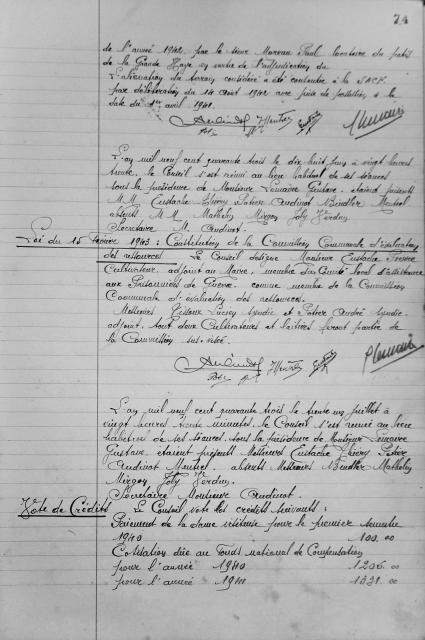 74
de l'année 1942, par le sieur Morvan Paul locataire du pâtis
de la Grande Haye en vertu de l'adjudication du
L'aliénation du terrain considéré a été consentie à la SNCF
par délibération du 14 août 1942 avec prise de possession à la
date du 1er avril 1941.
L'an mil neuf cent quarante trois le dix huit juin à vingt heures
trente, le Conseil s'est réuni au lieu habituel de ses séances
sous la présidence de Monsieur Lemaire Gustave. étaient présents
M.M. Eustache Thiery Patrice Audinot Bindler Menuel
absents M.M. Mathelin Mirgon Joly Verdun
Secrétaire M. Audinot.
Loi du 15 Février 1943 : Constitution de la Commission Communale d'évaluation
des ressources Le Conseil désigne Monsieur Eustache
Cultivateur adjoint au Maire, membre du Comité local d'assistance
aux Prisonniers de Guerre comme membre de la Commission
Communale d'évaluation des ressources.
Messieurs Lucien Syndic et André Syndic
adjoint, tout deux Cultivateurs et feront partie de
la Commission sus visée.
L'an mil neuf cent quarante trois le trente un juillet à
vingt heures trente minutes, le Conseil s'est réuni au lieu
habituel de ses séances, sous la présidence de Monsieur Lemaire
Gustave, étaient présents Messieurs Eustache Thiery
Audinot Menuel. absents Messieurs Bindler Mathelin
Mirgon Joly Verdun.
Secrétaire Monsieur Audinot.
Vote de Crédits Le Conseil vote les crédits suivants :
Paiement de la somme pour le premier semestre
1940 100.00
Cotisation due au Fonds national de Compensation
pour l'année 1940 1206.00
pour l'année 1941 1331.00